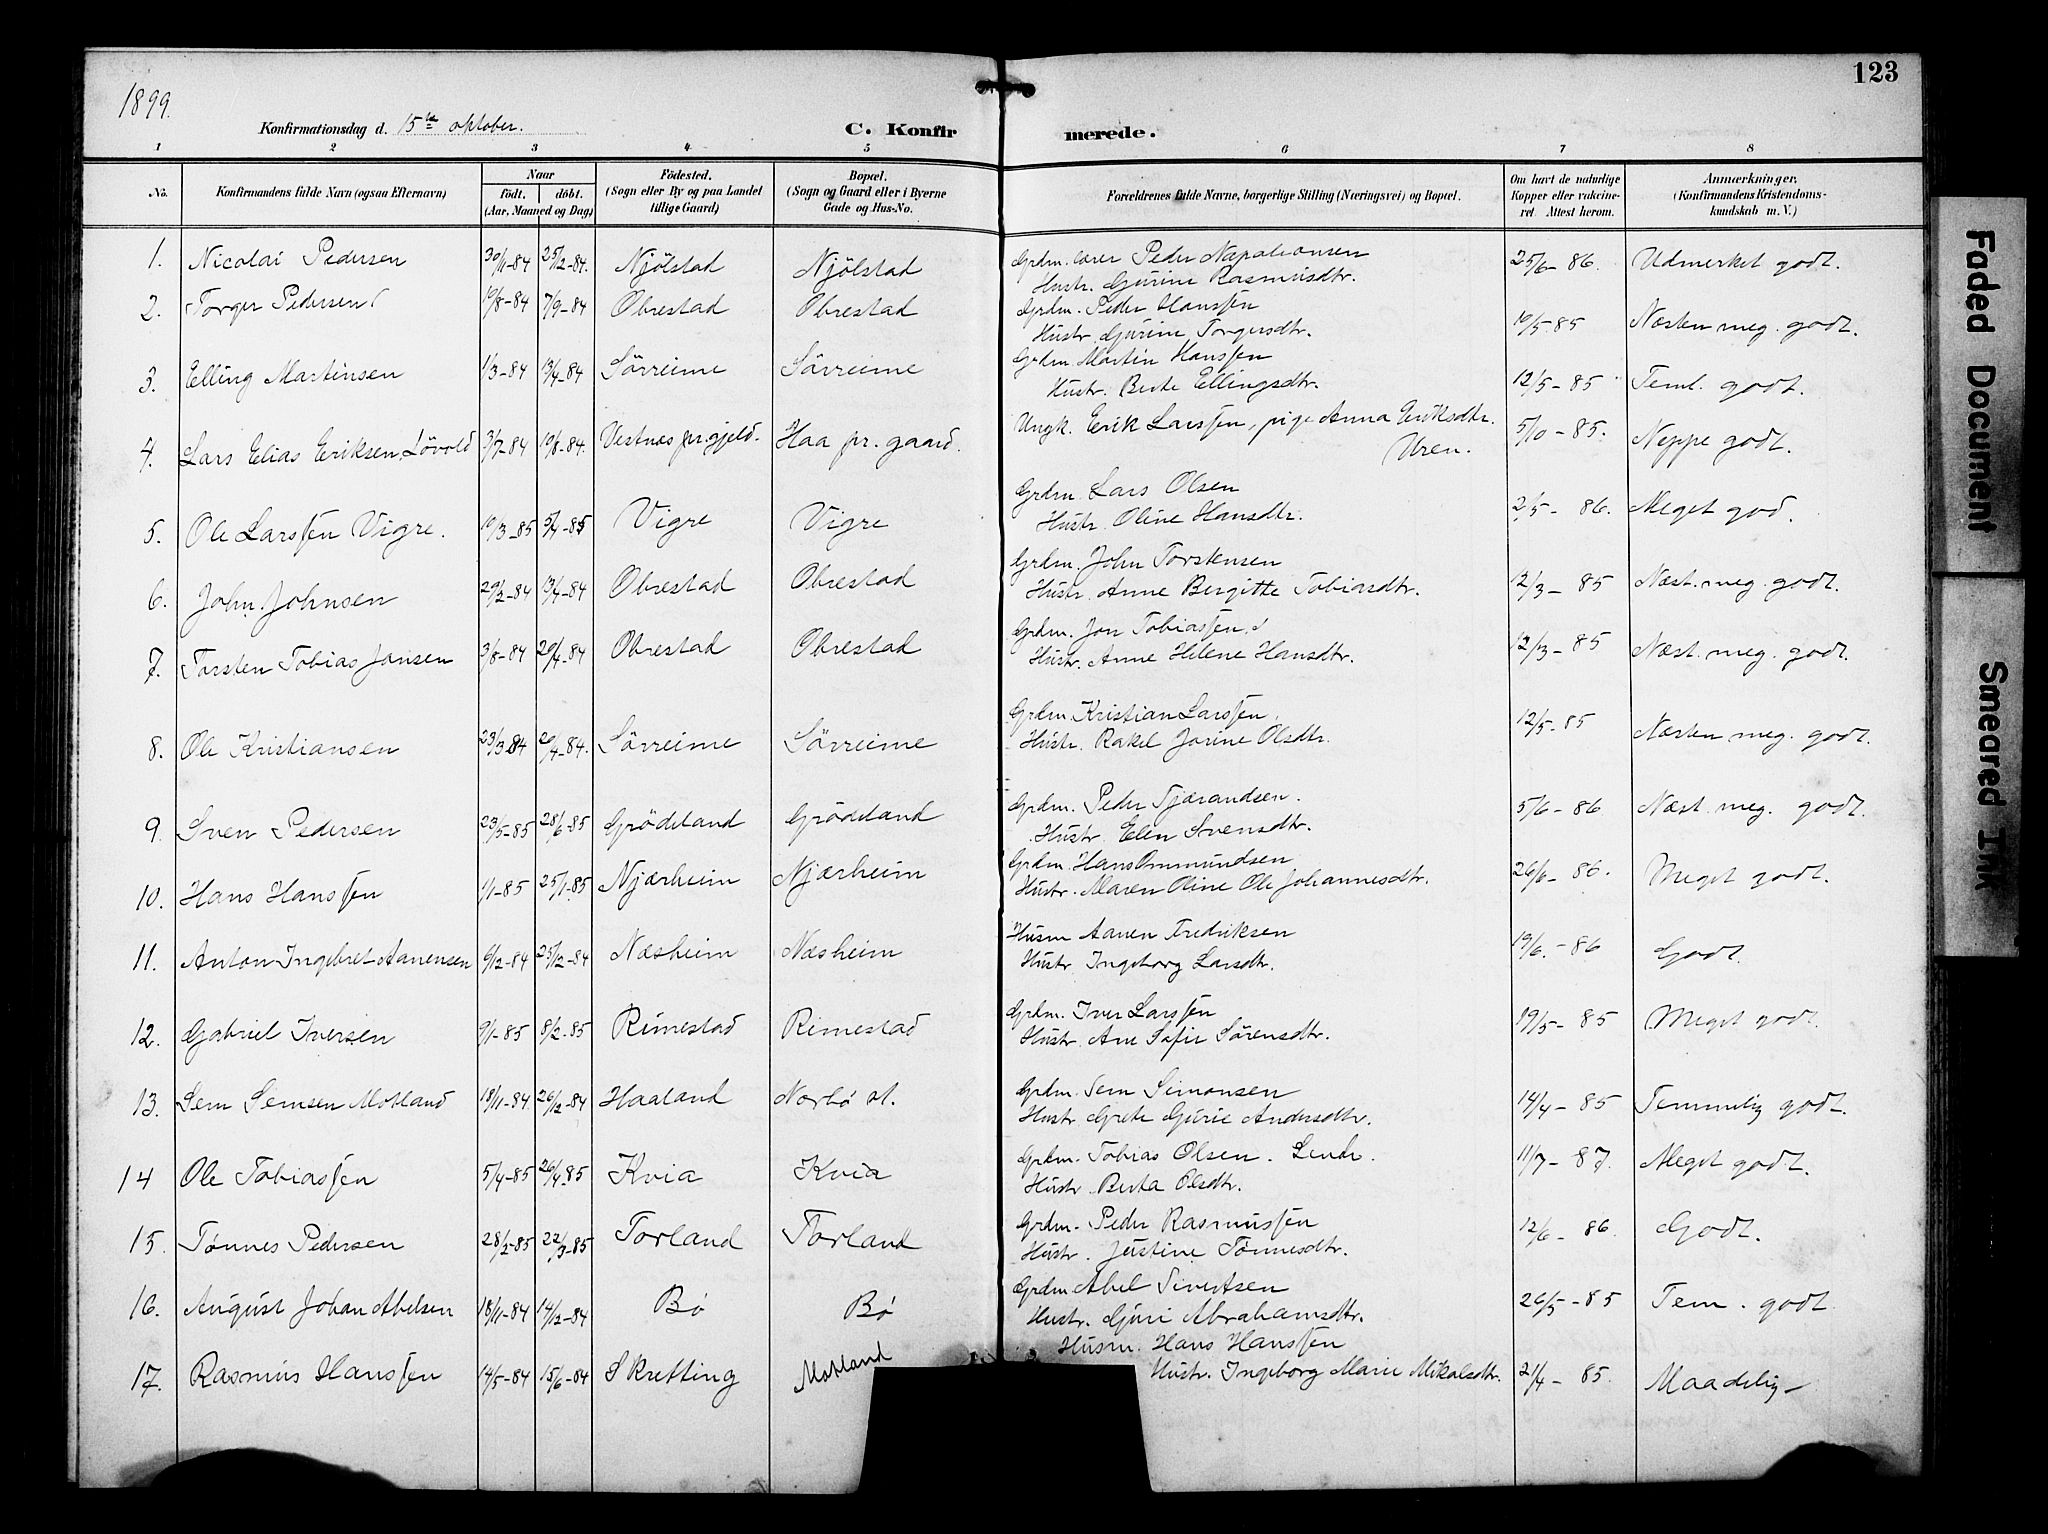 123
1899.
Konfirmationsdag d. 15de oktober. C. Konfirmerede.
1 2 3 4 5 6 7 8
No. Konfirmandens fulde Navn (ogsaa Efternavn) Naar födt. döbt. (Aar, Maaned og Dag) Födested. (Sogn eller By og paa Landet tillige Gaard) Bopæl. (Sogn og Gaard eller i Byerne Gade og Hus-No. Forældrenes fulde Navne, borgerlige Stilling (Næringsvei) og Bopæl. Om havt de naturlige Kopper eller vakcineret. Attest herom. Anmærkninger. (Konfirmandens Kristendomskundskab m. V.)
1. Nicolai Pedersen 30/11-84 25/12-84. Njölstad Njölstad Grdm. Peder Napoleonsen 25/6-86. Udmerket godt.
Hustr. Gurine Rasmusdtr.
2. Torger Pedersen 19/8-84 7/9-84 Obrestad Obrestad Grdm. Peder Hanssen 19/5-85 Næsten meg. godt.
Hustr. Gurine Torgersdtr.
3. Elling Martinsen 1/3-84 13/4-84 Sörreime Sörreime Grdm. Martin Hanssen 12/5-85 Teml. godt.
Hustr. Berte Ellingsdtr.
4. Lars Elias Eriksen Lövold 3/7-84 10/8-84. Vestnes pr.gjeld. Haa pr. gaard. Ungk. Erik Larssen, pige Anna Eriksdtr. 5/10-85. Neppe godt.
Uren.
5. Ole Larssen Vigre. 10/3-85 5/4-85 Vigre Vigre Grdm. Lars Olsen 2/5-86. Meget god.
Hustr. Oline Hansdtr.
6. John Johnsen 29/2-84 13/4-84 Obrestad Obrestad Grdm. John Torstensen 12/3-85 Næst. meg. godt.
Hustr. Anne Birgitte Tobiasdtr.
7. Torsten Tobias Jonsen 3/8-84 20/4-84 Obrestad Obrestad Grdm. Jon Tobiassen 12/3-85 Næst. meg. godt.
Hustr. Anne Helene Hansdtr.
8. Ole Kristiansen 23/3-84 20/4-84. Sörreime Sörreime Grdm. Kristian Larssen 12/5-85 Næsten meg. godt.
Hustr. Rakel Jorine Olsdtr.
9. Sven Pedersen 23/5-85 28/6-85 Grödeland Grödeland Grdm. Peder Tjærandsen. 5/6-86 Næst. meg. godt.
Hustr. Elen Svensdtr.
10. Hans Hanssen 1/1-85 25/1-85 Njærheim Njærheim Grdm. Hans Ommundsen 26/6-86. Meget godt.
Hustr. Maren Oline Ole Johannesdtr.
11. Anton Ingebret Aanensen 9/12-84 25/12-84 Næsheim Næsheim Husm Aanen Fredriksen 19/6.-86 Godt.
Hustr Ingeborg Larsdtr.
12. Gabriel Iversen 9/1-85 8/2-85 Rimestad Rimestad Grdm. Iver Larssen 19/5-85 Meget godt.
Hustr. Ane Sofie Sörensdtr.
13. Sem Semsen Motland 18/11-84 26/12-84 Haaland Nærbö st. Grdm. Sem Simonsen 14/4-85 Temmelig godt.
Hustr Grete Gurie Andersdtr.
14 Ole Tobiassen 5/4-85 26/4-85 Kvia Kvia Grdm. Tobias Olsen. 11/7-87. Meget godt.
Hustr Berta Olsdtr.
15. Tønnes Pedersen 28/2-85 22/3-85 Torland Torland Grdm. Peder Rasmussen 12/6-86. Godt.
Hustr. Justine Tønnesdtr.
16. August Johan Abelsen 18/11-84 14/12-84 Bø Bø Grdm Abel Sivertsen 26/5-85 Tem. godt
Hustr. Guri Abrahamsdtr.
17. Rasmus Hanssen 14/5-84 15/6-84 Skretting Motland Husm. Hans Hanssen 21/4-85. Maadelig
Hustr. Ingeborg Marie Mikalsdtr.
Faded Document
Smeared Ink